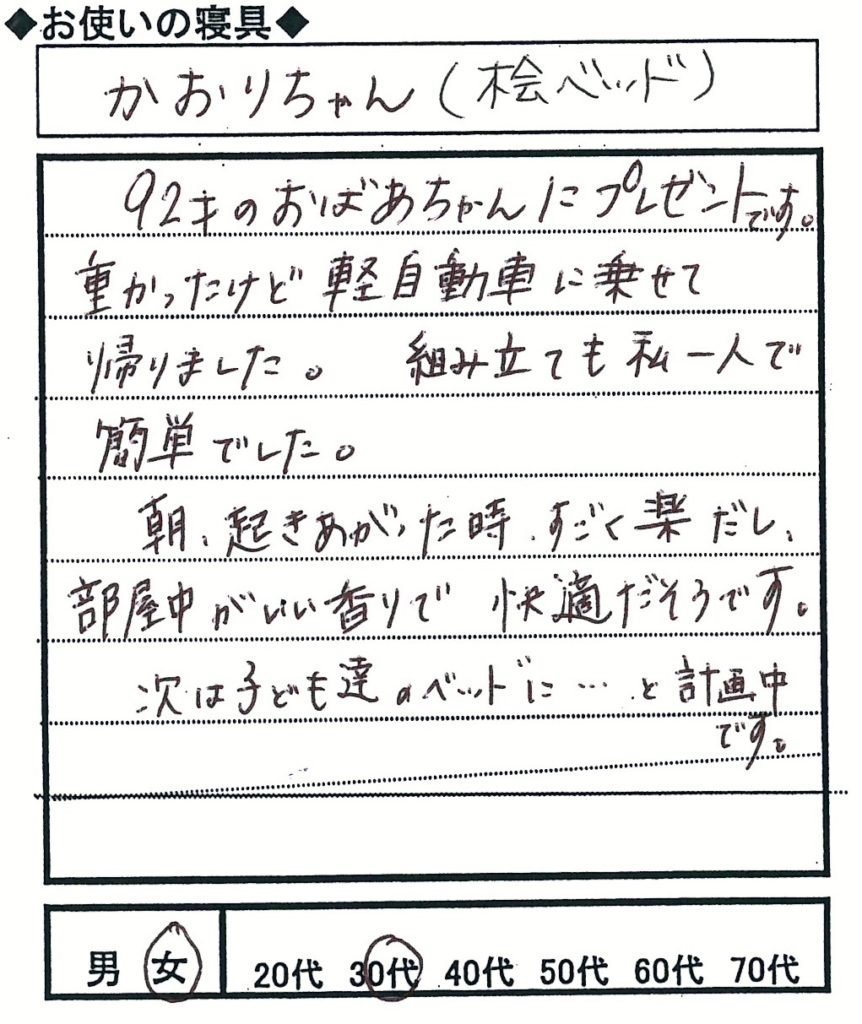 ◆お使いの寝具◆
かおりちゃん(桧ベッド)
92才のおばあちゃんにプレゼントです。
重かったけど軽自動車に乗せて
帰りました。 組み立ても私一人で
簡単でした。
朝、起きあがった時、すごく楽だし、
部屋中がいい香りで 快適だそうです。
次は子ども達のベッドに…と計画中
です。
男 女 20代 30代 40代 50代 60代 70代